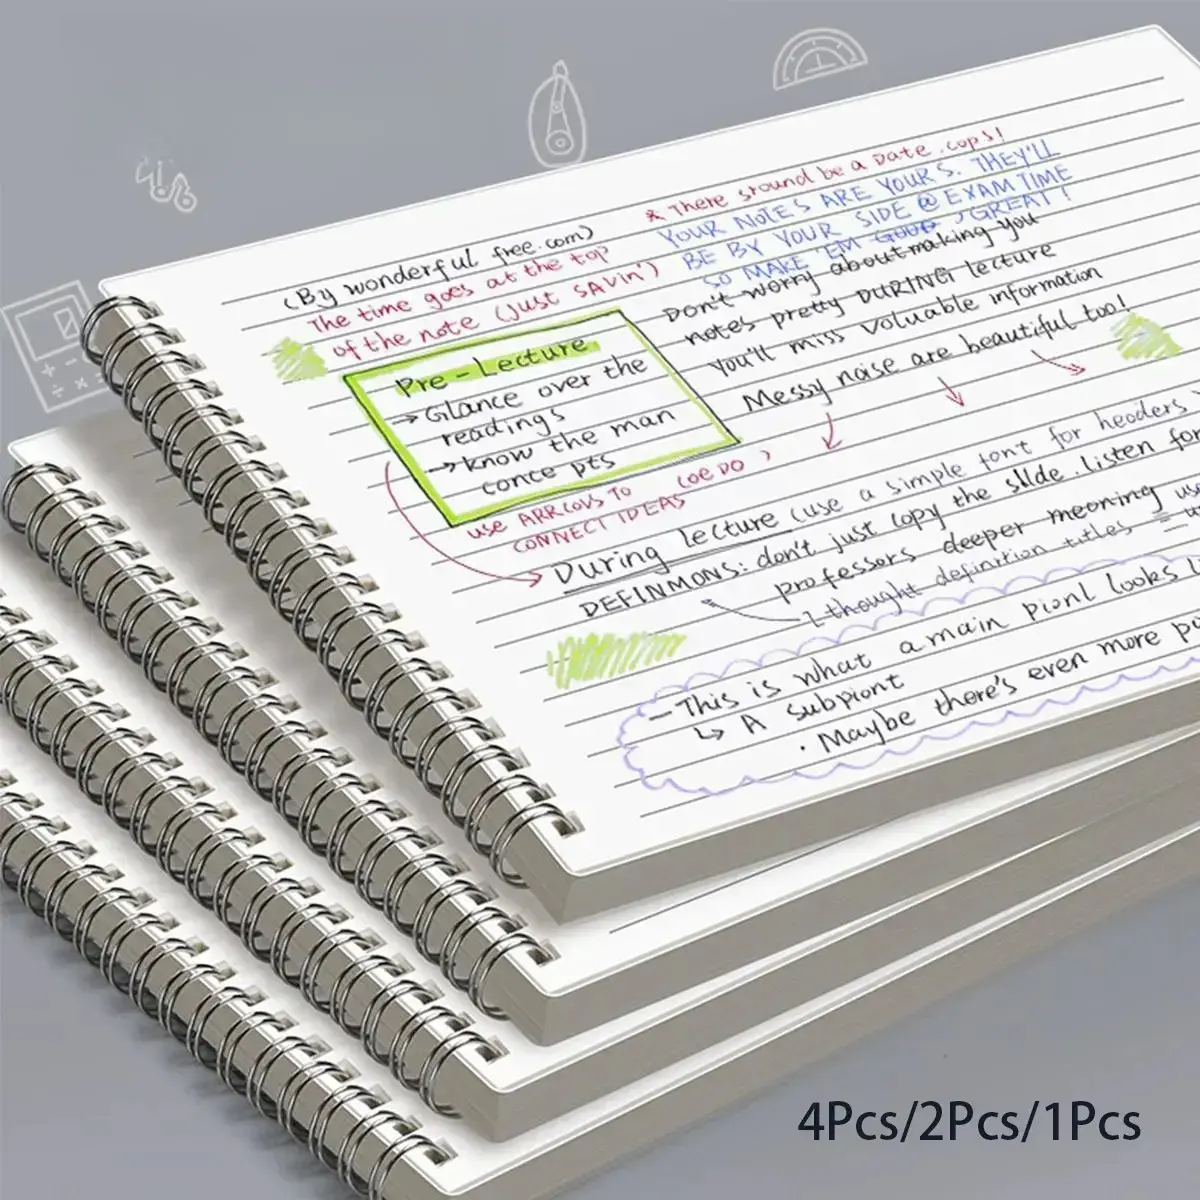 (By wonderful free.com)
The time goes at the top
of the note (Just SAVin')
* There sround be a Date .cops!
YOUR NOTES ARE YOURS. THEY'LL
BE BY YOUR SIDE @ EXAM TIME
SO MAKE 'EM GOOD, GREAT!
Don't worry about making you
notes pretty DURING lecture
You'll miss Valuable information
Messy noise are beautiful too!
Pre-Lecture
→ Glance over the
readings
→ know the man
conce pts
use ARRCOVS TO (OE DO )
CONNECT IDEAS
During lecture (use a simple font for heoders.
DEFINMONS: don't just copy the slide. listen for
professors deeper meoning use
2-thought definition titles =
- This is what a main pionl looks l
↳ A subpiont
· Maybe there's even more po
4Pcs/2Pcs/1Pcs